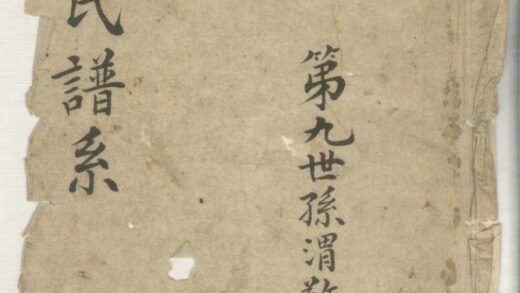 第九世孫渭
氏譜系